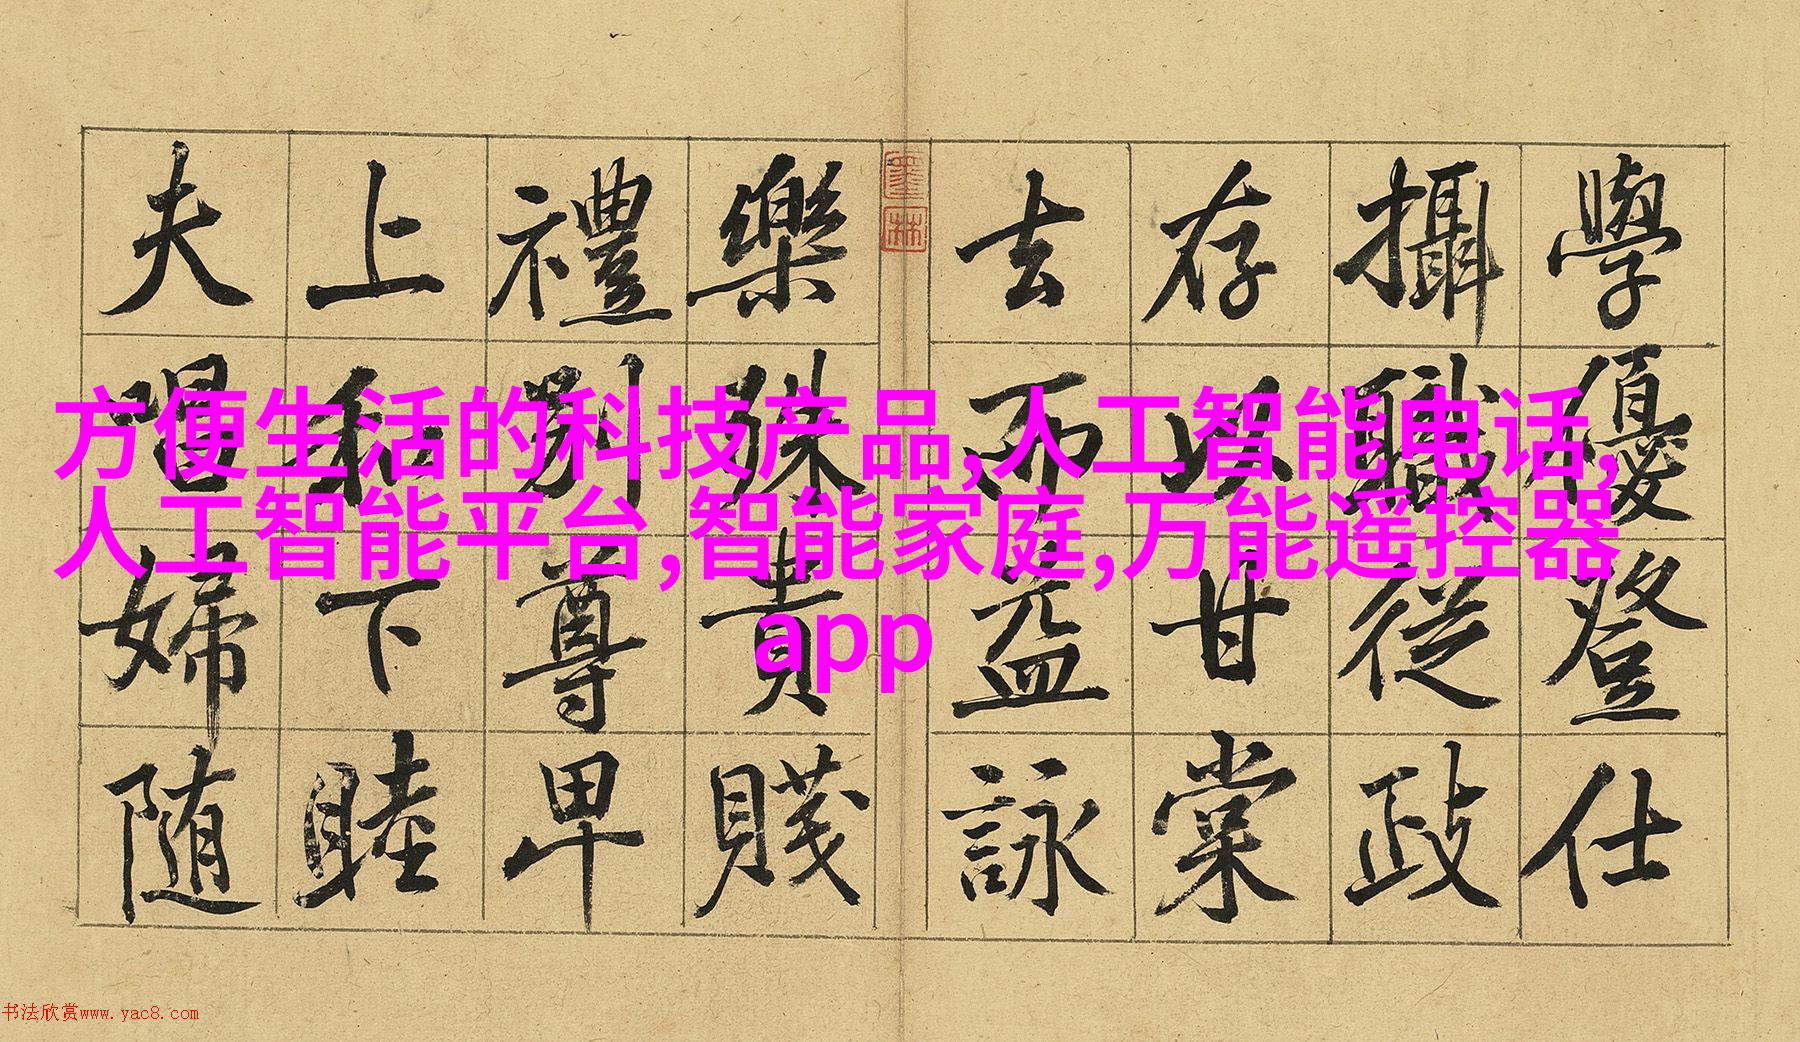 學優登仕
攝職從政
存以甘棠
去而益詠
樂殊貴賤
禮別尊卑
上和下睦
夫唱婦随
墨林
方便生活的科技产品,人工智能电话,
人工智能平台,智能家庭,万能遥控器
app
书法欣赏www.yac8.com